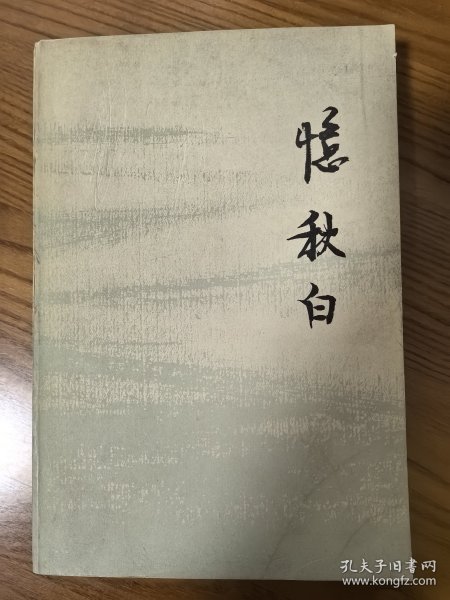 憶秋白
孔夫子旧书网
www.kongfz.com